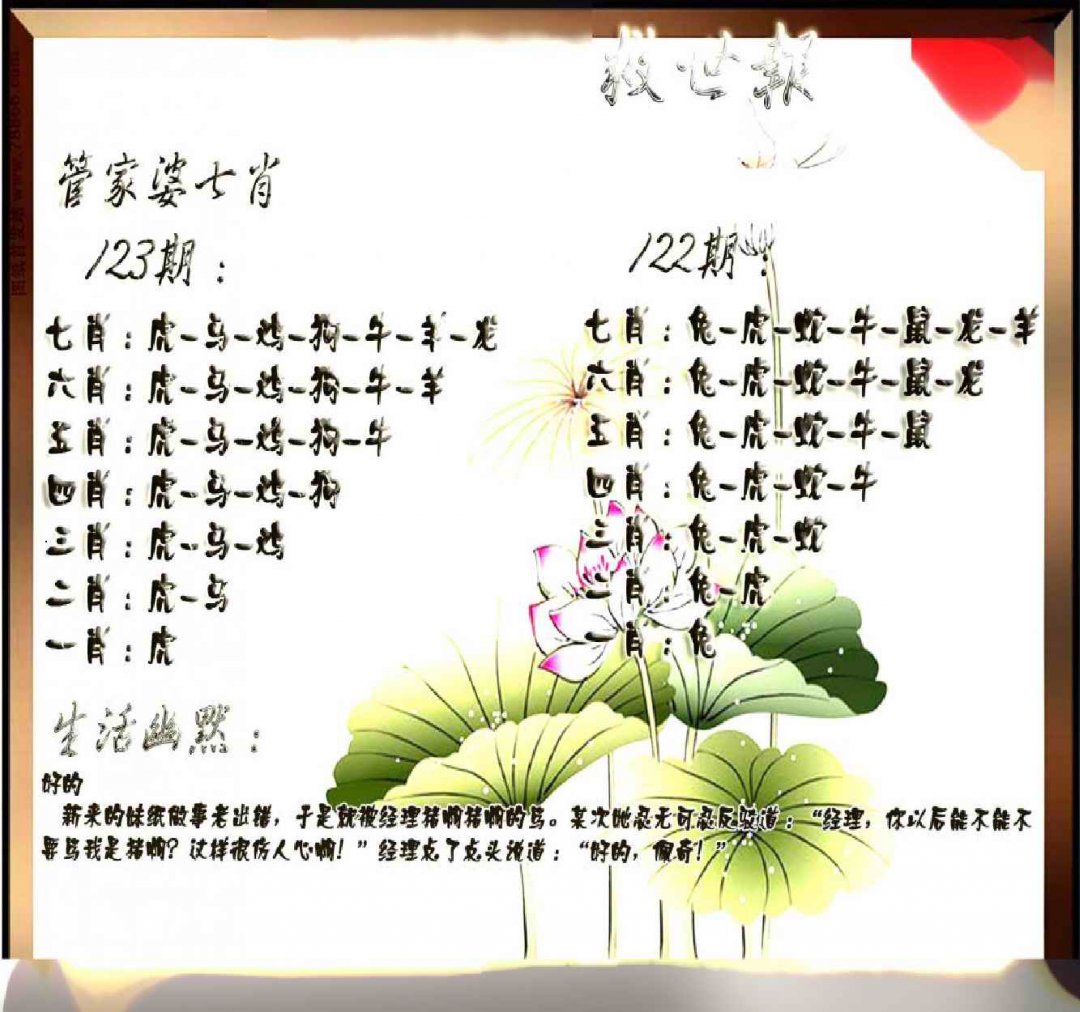 救世報
管家婆七肖
123期：
七肖：虎-马-鸡-狗-牛-羊-龙
六肖：虎-马-鸡-狗-牛-羊
五肖：虎-马-鸡-狗-牛
四肖：虎-马-鸡-狗
三肖：虎-马-鸡
二肖：虎-马
一肖：虎
122期：
七肖：兔-虎-蛇-牛-鼠-龙-羊
六肖：兔-虎-蛇-牛-鼠-龙
五肖：兔-虎-蛇-牛-鼠
四肖：兔-虎-蛇-牛
三肖：兔-虎-蛇
二肖：兔-虎
一肖：兔
生活幽默：
好的
新来的妹纸做事老出错，于是就被经理猪啊猪啊的骂。某次她忍无可忍反驳道：“经理，你以后能不能不
要骂我是猪啊？这样很伤人心啊！”经理点了点头说道：“好的，佩奇！”